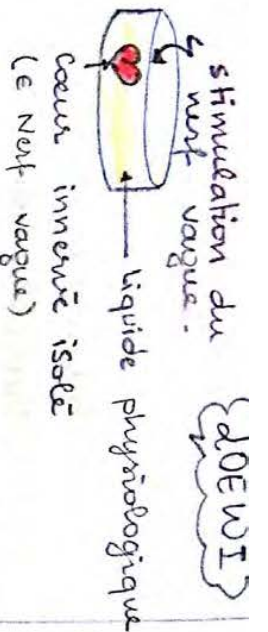 stimulation du
nerf vague.
{LOEWI}
Liquide physiologique
Cœur innervé isolé
(∈ Nerf vague)